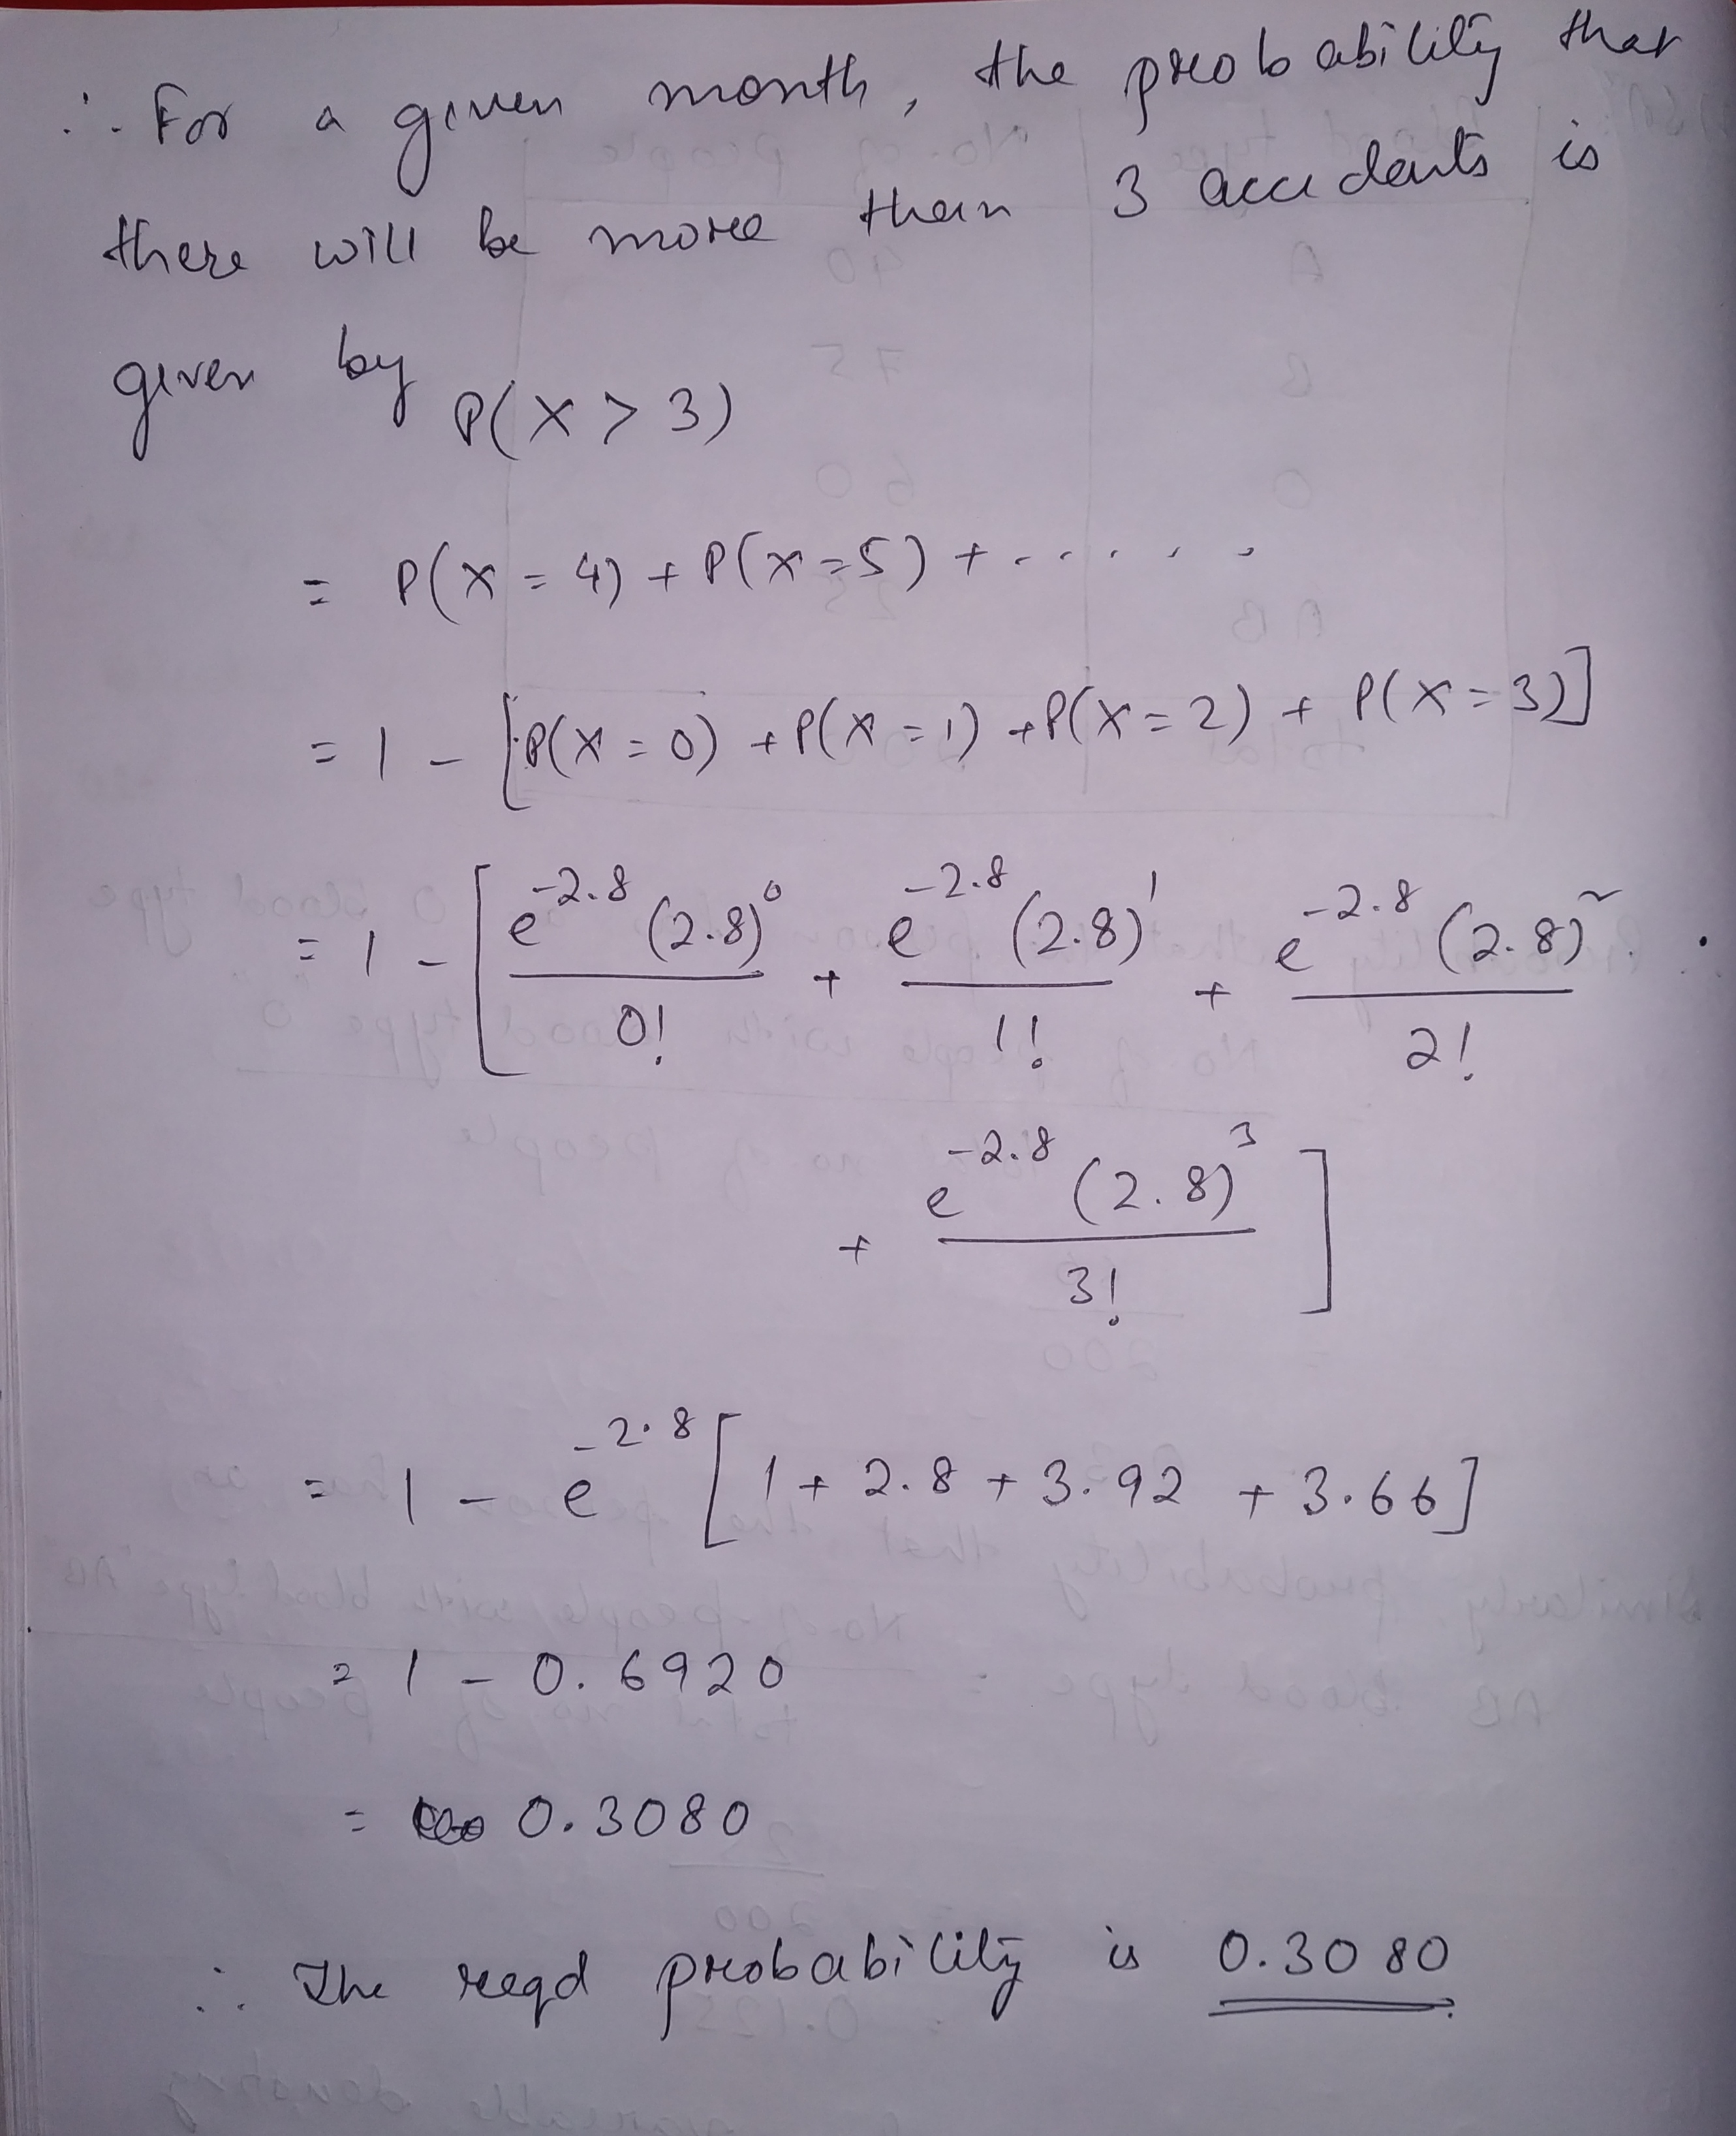 ∴ For a given month, the probability that
there will be more than 3 accidents is
given by P(X > 3)
= P(X = 4) + P(X = 5) + . . . . . .
= 1 - [P(X = 0) + P(X = 1) + P(X = 2) + P(X = 3)]
= 1 - [ e^-2.8 (2.8)^0 / 0! + e^-2.8 (2.8)^1 / 1! + e^-2.8 (2.8)^2 / 2!
+ e^-2.8 (2.8)^3 / 3! ]
= 1 - e^-2.8 [1 + 2.8 + 3.92 + 3.66]
= 1 - 0.6920
= 0.3080
∴ The reqd probability is 0.3080